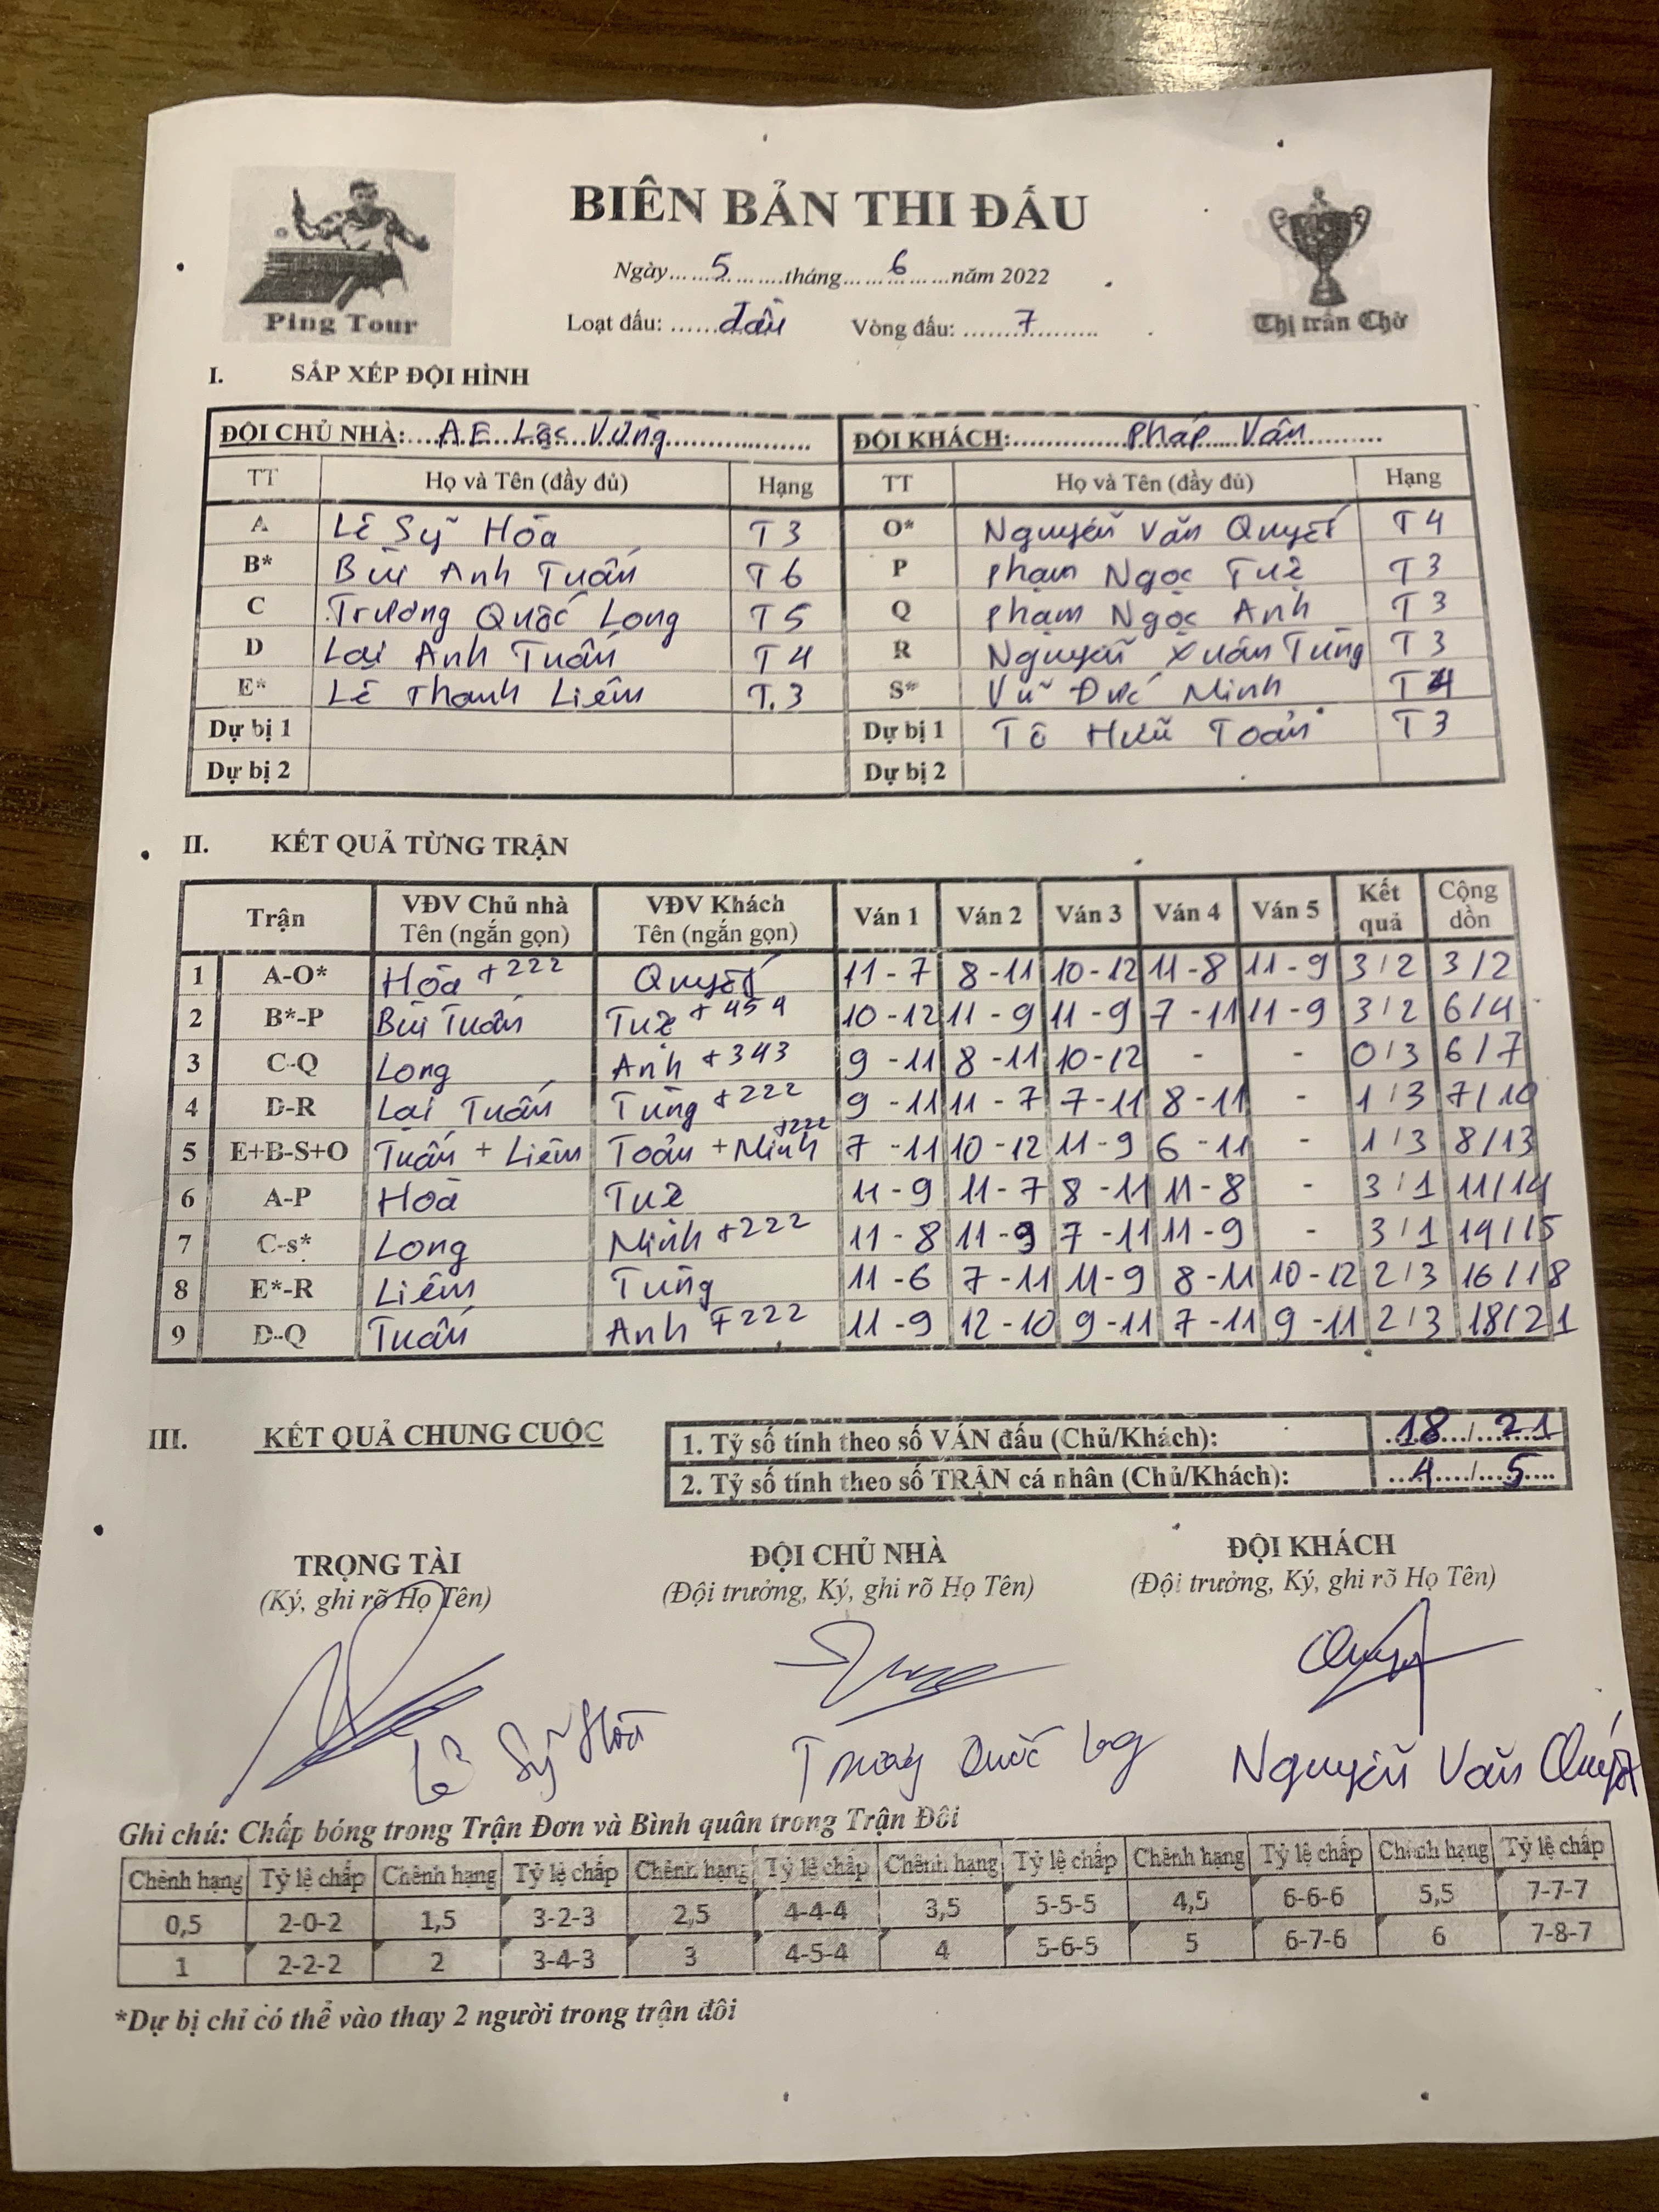 BIÊN BẢN THI ĐẤU
Ngày... ...5... ... ....tháng... ... 6 ... ...năm 2022
Ping Tour
Loạt đấu: ......đầu Vòng đấu: .........7............
Thị trấn Chờ
I. SẮP XẾP ĐỘI HÌNH
ĐỘI CHỦ NHÀ:....AE Lạc Vừng.................. ĐỘI KHÁCH:.................Pháp Vân............
TT Họ và Tên (đầy đủ) Hạng TT Họ và Tên (đầy đủ) Hạng
A Lê Sỹ Hòa T3 O* Nguyễn Văn Quyết T4
B* Bùi Anh Tuấn T6 P Phạm Ngọc Tuệ T3
C Trương Quốc Long T5 Q Phạm Ngọc Anh T3
D Lại Anh Tuấn T4 R Nguyễn Xuân Tùng T3
E* Lê Thanh Liêm T.3 S* Vũ Đức Minh T4
Dự bị 1 Dự bị 1 Tô Hữu Toản T3
Dự bị 2 Dự bị 2
II. KẾT QUẢ TỪNG TRẬN
Trận VĐV Chủ nhà Tên (ngắn gọn) VĐV Khách Tên (ngắn gọn) Ván 1 Ván 2 Ván 3 Ván 4 Ván 5 Kết quả Cộng dồn
1 A-O* Hòa +222 Quyết 11-7 8-11 10-12 11-8 11-9 3/2 3/2
2 B*-P Bùi Tuấn Tuệ +454 10-12 11-9 11-9 7-11 11-9 3/2 6/4
3 C-Q Long Anh +343 9-11 8-11 10-12 - - 0/3 6/7
4 D-R Lại Tuấn Tùng +222 9-11 11-7 7-11 8-11 - 1/3 7/10
5 E+B-S+O Tuấn + Liêm Toản + Minh +222 7-11 10-12 11-9 6-11 - 1/3 8/13
6 A-P Hoà Tuệ 11-9 11-7 8-11 11-8 - 3/1 11/14
7 C-s* Long Minh +222 11-8 11-9 7-11 11-9 - 3/1 14/15
8 E*-R Liêm Tùng 11-6 7-11 11-9 8-11 10-12 2/3 16/18
9 D-Q Tuấn Anh +222 11-9 12-10 9-11 7-11 9-11 2/3 18/21
III. KẾT QUẢ CHUNG CUỘC
1. Tỷ số tính theo số VÁN đấu (Chủ/Khách): ..18..../...21....
2. Tỷ số tính theo số TRẬN cá nhân (Chủ/Khách): ...4..../....5.....
TRỌNG TÀI ĐỘI CHỦ NHÀ ĐỘI KHÁCH
(Ký, ghi rõ Họ Tên) (Đội trưởng, Ký, ghi rõ Họ Tên) (Đội trưởng, Ký, ghi rõ Họ Tên)
Lê Sỹ Hoà Trương Quốc Long Nguyễn Văn Quyết
Ghi chú: Chấp bóng trong Trận Đơn và Bình quân trong Trận Đôi
Chênh hạng Tỷ lệ chấp Chênh hạng Tỷ lệ chấp Chênh hạng Tỷ lệ chấp Chênh hạng Tỷ lệ chấp Chênh hạng Tỷ lệ chấp Chênh hạng Tỷ lệ chấp
0,5 2-0-2 1,5 3-2-3 2,5 4-4-4 3,5 5-5-5 4,5 6-6-6 5,5 7-7-7
1 2-2-2 2 3-4-3 3 4-5-4 4 5-6-5 5 6-7-6 6 7-8-7
*Dự bị chỉ có thể vào thay 2 người trong trận đôi